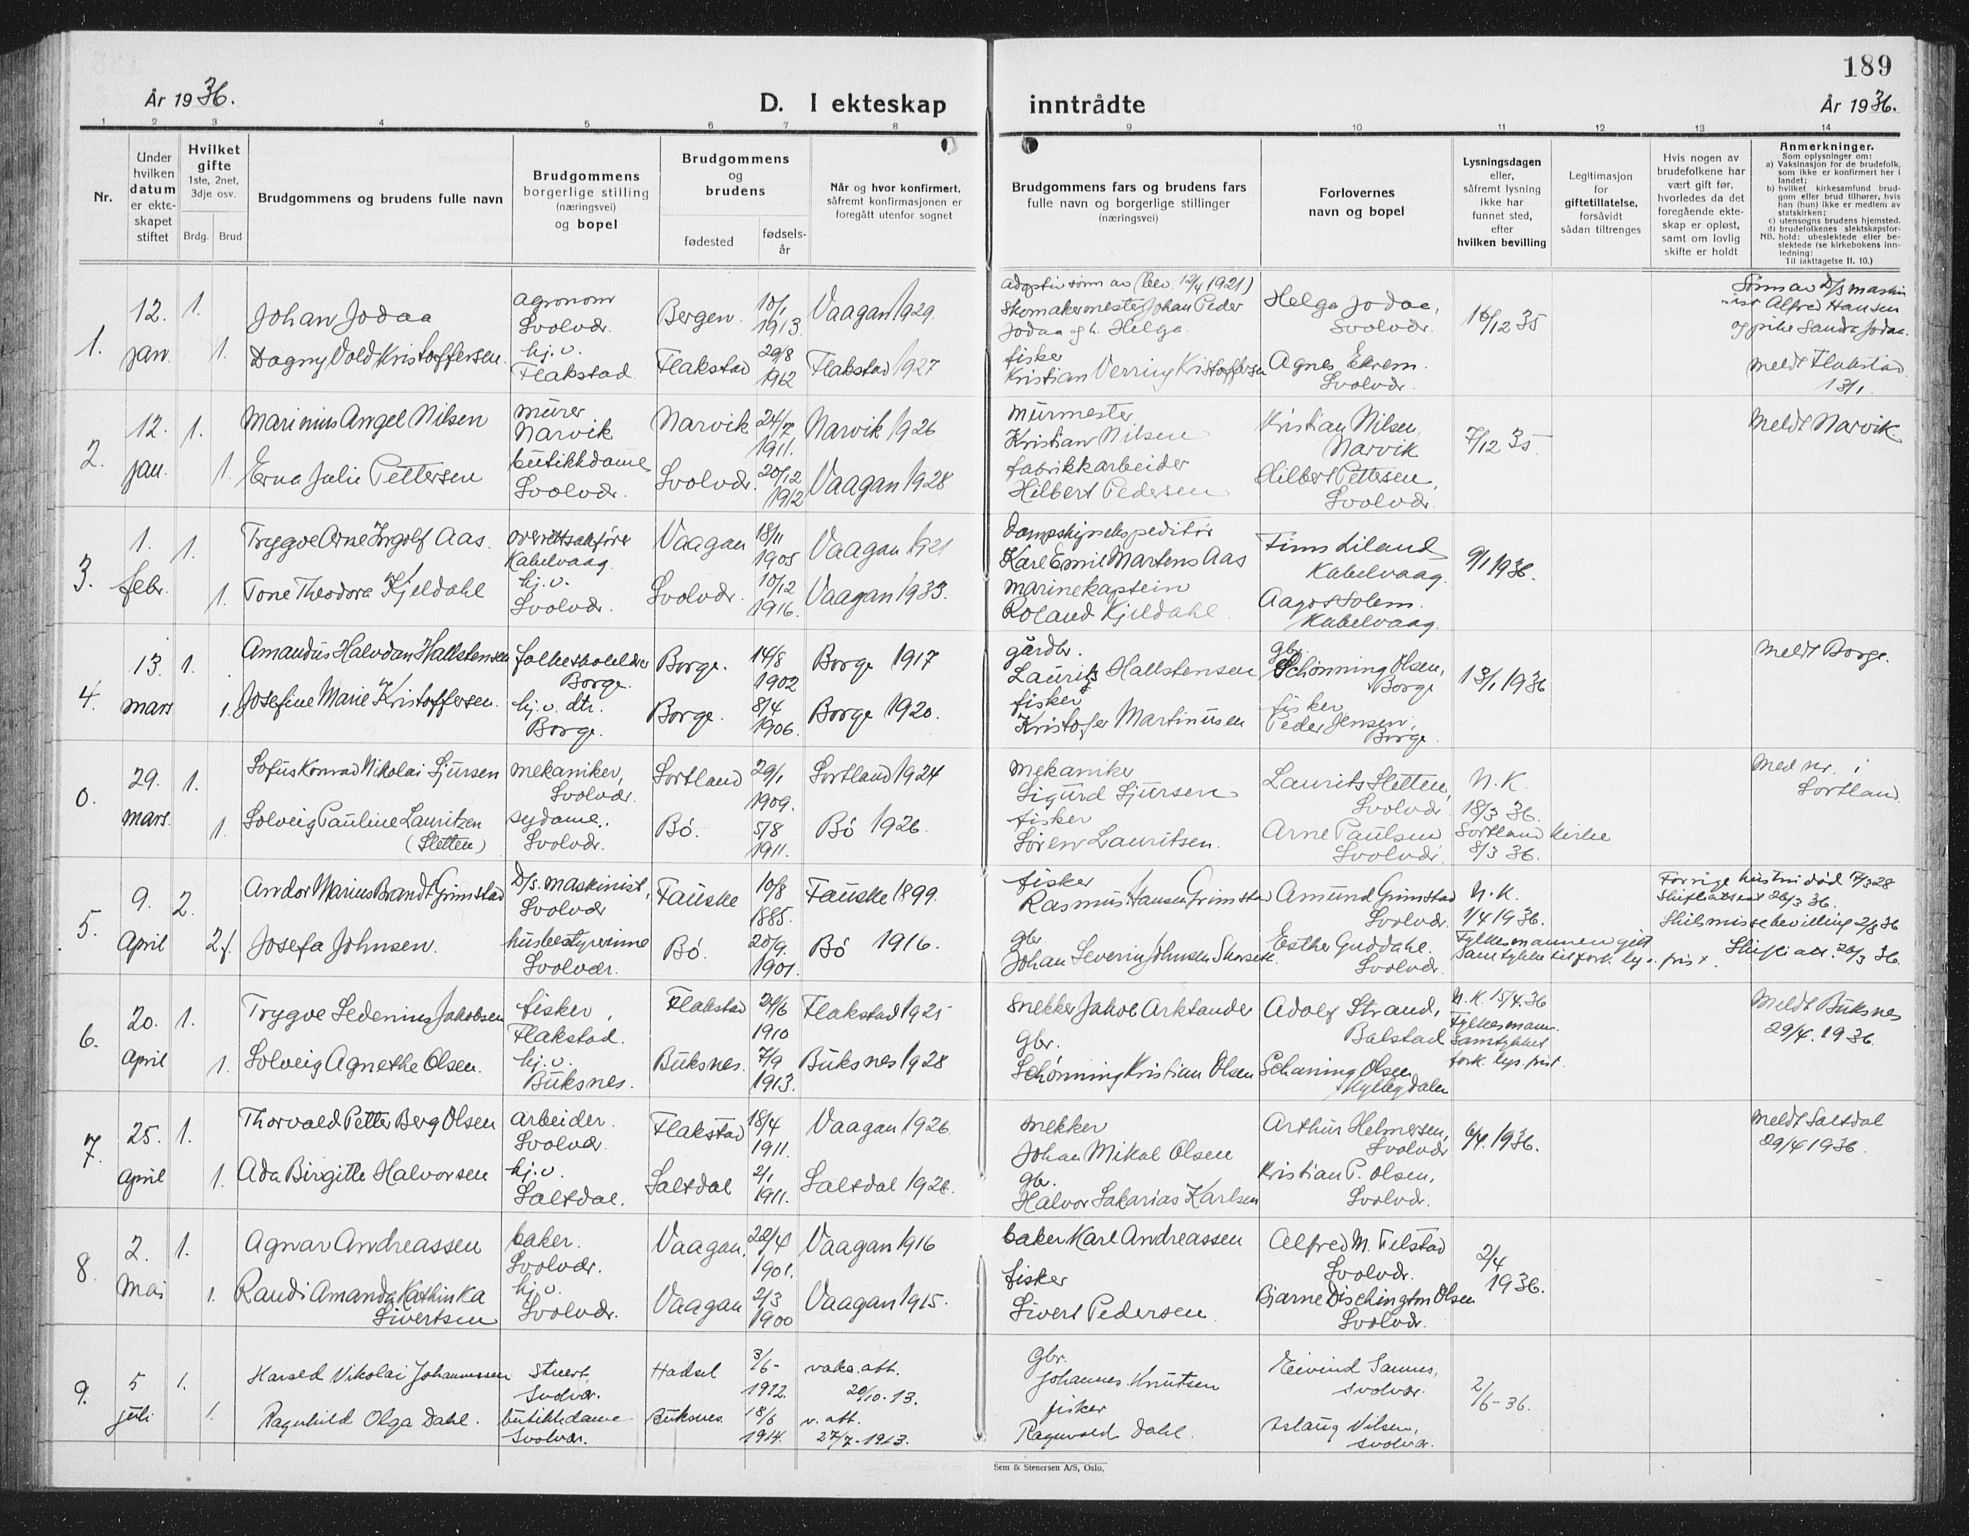 189
År 1936.
D. I ekteskap inntrådte
År 1936.
1 2 3 4 5 6 7 8 9 10 11 12 13 14
Nr.
Under hvilken datum er ekteskapet stiftet
Hvilket gifte 1ste, 2net, 3dje osv.
Brdg. Brud
Brudgommens og brudens fulle navn
Brudgommens borgerlige stilling (næringsvei) og bopel
Brudgommens og brudens
fødested
fødselsår
Når og hvor konfirmert, såfremt konfirmasjonen er foregått utenfor sognet
Brudgommens fars og brudens fars fulle navn og borgerlige stillinger (næringsvei)
Forlovernes navn og bopel
Lysningsdagen eller, såfremt lysning ikke har funnet sted, efter hvilken bevilling
Legitimasjon for giftetillatelse, forsåvidt sådan tiltrenges
Hvis nogen av brudefolkene har vært gift før, hvorledes da det foregående ekteskap er opløst, samt om lovlig skifte er holdt
Anmerkninger.
Som oplysninger om:
a) Vaksinasjon for de brudefolk, som ikke er konfirmert her i landet;
b) hvilket kirkesamfund brudgom eller brud tilhører, hvis han (hun) ikke er medlem av statskirken;
c) utensogns brudens hjemsted.
d) brudefolkenes slektskapsforhold: ubeslektede eller beslektede (se kirkebokens innledning:
NB. Til iakttagelse II. 10.)
1. 12. jan. 1. Johan Jodaa agronom Svolvær. Bergen. 10/1 1913. Vaagan 1929. adoptivsønn av (bev. 12/4 1921) Skomakermester Johan Peder Jodaa og h. Helga. Helga Jodaa, Svolvær. 16/12 35 Sønn av D/s maskinist Alfred Hansen og pike Sanda Jodaa.
1. Dagny Vold Kristoffersen. hj.v. Flakstad. Flakstad 29/8 1912 Flakstad 1927 fisker Kristian Verring Kristoffersen Agnes Ekrem. Svolvær. meldt Flakstad 13/1.
2. 12. jan. 1. Marinius Angel Nilsen murer Narvik Narvik 24/7 1911. Narvik 1926 murmester Kristian Nilsen Kristian Nilsen, Narvik 7/12 35 Meldt Narvik.
1. Erna Julie Pettersen butikkdame Svolvær. Svolvær. 20/12 1912 Vaagan 1928 fabrikkarbeider Hilbert Pedersen Hilbert Pettersen, Svolvær.
3. 1. febr. 1. Trygve Arne Ingolf Aas. overrettsakfører Kabelvaag. Vaagan 18/11 1905 Vaagan 1921 Dampskipsekspeditør Karl Emil Martens Aas Finn Liland Kabelvaag. 9/1 1936.
1. Tone Theodora Kjeldahl hj.v. Svolvær. Svolvær. 10/12 1916. Vaagan 1933. marinekaptein Roland Kjeldahl. Aagot Solem. Kabelvaag.
4. 13. mars 1. Amandus Halvdan Hallstensen Borge. Borge. 14/8 1902 Borge 1917 gårdbr. Laurits Hallstensen gbr. Schønning Olsen, Borge 13/1 1936 Meldt Borge.
1. Josefine Marie Kristoffersen. hj.v. dtr. Borge. Borge. 8/4 1906. Borge 1920. fisker Kristofer Martinusen fisker Peder Jensen, Borge.
0. 29. mars. 1. Sofus Konrad Nikolai Sjursen mekaniker, Svolvær. Sortland 29/1 1909. Sortland 1924 mekaniker Sigurd Sjursen Laurits Sletten, Svolvær N.K. 18/3 36. Med nr. i Sortland.
1. Solveig Pauline Lauritzen (Sletten) sydame. Svolvær. Bø. 5/8 1911. Bø 1926. fisker Søren Lauritsen. Arne Paulsen Svolvær. Sortland kirke 8/3 36.
5. 9. April 2. Andor Marius Brandt Grimstad D/s. maskinist, Svolvær Fauske 10/8 1885. Fauske 1899. fisker Rasmus Hansen Grimstad Amund Grimstad Svolvær. N.K. 1/4 1936. Forrige hustru død 7/3 28 Skifteattest 26/3 36.
2f. Josefa Johnsen. husbestyrerinne Svolvær. Bø. 20/9. 1901. Bø 1916. gbr Johan Severin Johnsen Esther Guddahl. Svolvær. Fylkesmannen gitt samtykke til fork. lys. frist. Skilsmissebevilling 2/8 36 Skifteatt. 26/3 36.
6. 20. april 1. Trygve Sedenius Jakobsen fisker, Flakstad. Flakstad 24/6 1910 Flakstad 1925 snekker Jahve Arktander Adolf Strand, Balstad N.K. 15/4. 36 Fylkesmann. samtykket fork. lys. frist. Meldt Buksnes 29/4. 1936.
1. Solveig Agnethe Olsen. hj.v. Buksnes. Buksnes. 7/9 1913. Buksnes 1928 gbr. Schønning Kristian Olsen Schøning Olsen
7. 25. april 1. Thorvald Petter Berg Olsen arbeider. Svolvær. Flakstad 18/4 1911. Vaagan 1926. snekker Johan Mikal Olsen Arthur Helmersen, Svolvær 6/4. 1936. Meldt Saltdal 29/4 1936.
1. Ada Birgitte Halvorsen hj.v. Saltdal. Saltdal 2/1 1911. Saltdal 1926. gbr. Halvor Sakarias Karlsen Kristian P. Olsen, Svolvær.
8. 2. Mai 1. Agnar Andreassen baker. Svolvær. Vaagan. 22/4 1901. Vaagan 1916 baker Karl Andreassen Alfred M. Filstad Svolvær. 2/4 1936.
1. Randi Amanda Kathinka Sivertsen hj.v. Svolvær. Vaagan 2/3 1900 Vaagan 1915. fisker Sivert Pedersen. Bjarne Dischington Olsen Svolvær.
9. 5 juli 1. Harald Nikolai Johannessen stuert, Svolvær. Hadsel 3/6- 1912. vaks. att. 20/10. 13. Gbr. Johannes Knutsen Eivind Sannes, Svolvær. 2/6-36.
1. Ragnhild Olga Dahl. butikkdame Svolvær. Buksnes. 18/6 1914. v. att. 27/7-1913. fisker Ragnvald Dahl. Aslaug Nilsen, Svolvær.
Sem & Stenersen A/S, Oslo.